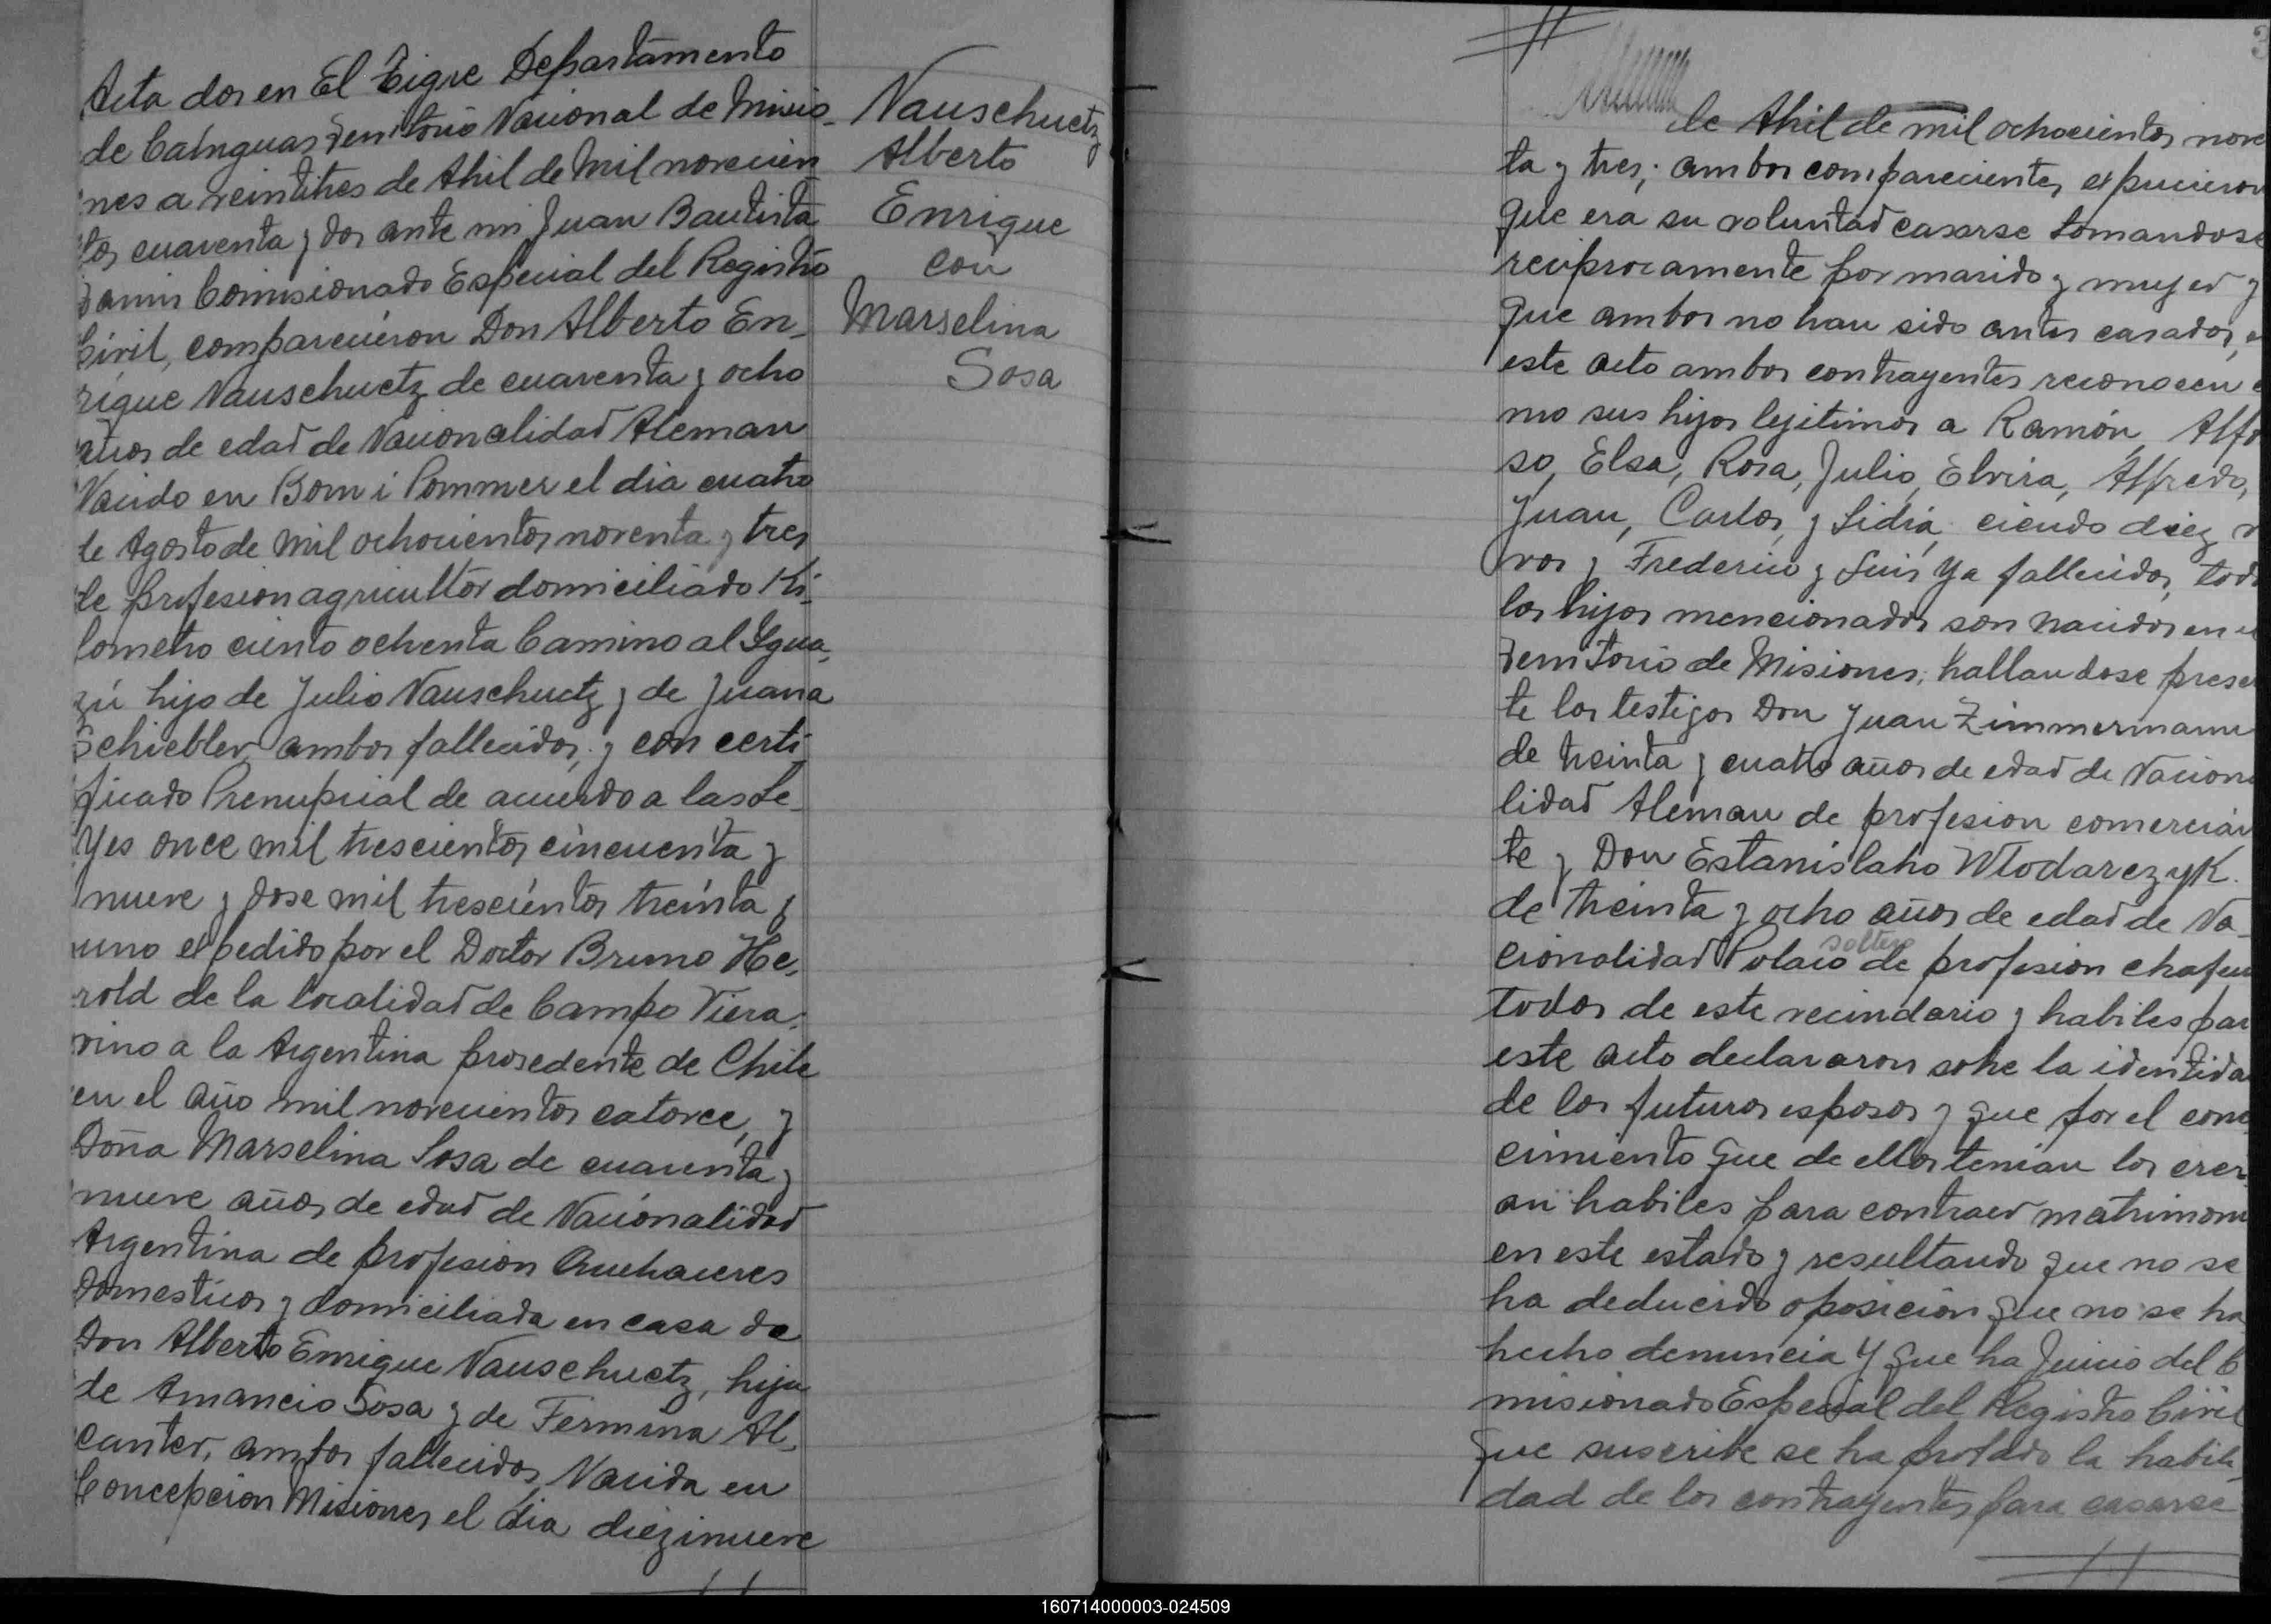 Acta dos en El Tigre Departamento
de Cainguas Territorio Nacional de Misio-
nes a veintitres de Abril de Mil novecien
tos cuarenta y dos ante mi Juan Bautista
Comisionado Especial del Registro
Civil, comparecieron Don Alberto En-
rique Nauschuetz de cuarenta y ocho
años de edad de Nacionalidad Aleman
Nacido en Born i Pommer el dia cuatro
de Agosto de Mil ochocientos noventa y tres
de profesion agricultor domiciliado Ki-
lometro ciento ochenta Camino al Igua-
zú hijo de Julio Nauschuetz y de Juana
Schiebler, ambos fallecidos, y con certi
ficado Prenupcial de acuerdo a las Le-
yes once mil trescientos cincuenta y
nueve y dose mil trescientos treinta y
uno expedido por el Doctor Bruno He-
rold de la localidad de Campo Viera.
vino a la Argentina prosedente de Chile
en el año mil novecientos catorce, y
Doña Marselina Sosa de cuarenta y
nueve años de edad de Nacionalidad
Argentina de profesion Quehaceres
domesticos y domiciliada en casa de
Don Alberto Enrique Nauschuetz, hija
de Amancio Sosa y de Fermina Al-
canter, ambos fallecidos, Nacida en
Concepcion Misiones el dia diezinueve
Nauschuetz
Alberto
Enrique
con
Marselina
Sosa
de Abril de mil ochocientos nove
ta y tres; ambos comparecientes expucieron
que era su voluntad casarse tomandose
reciprocamente por marido y mujer y
que ambos no han sido antes casados, e
este acto ambos contrayentes reconocen c
mo sus hijos lejitimos a Ramón, Alfo
so, Elsa, Rosa, Julio, Elvira, Alfredo,
Juan, Carlos, y Lidia, ciendo diez v
vos y Frederico y Luis ya fallecidos, tod
los hijos mencionados son nacidos en e
Territorio de Misiones; hallandose prese
te los testigos Don Juan Zimmermann
de treinta y cuatro años de edad de Naciona
lidad Aleman de profesion comercian
te y Don Estanislaho Wlodarczyk.
de treinta y ocho años de edad de Na-
soltero
cionalidad Polaco de profesion chafeu
todos de este vecindario y habiles par
este acto declararon sobre la identida
de los futuros esposos y que por el cono
cimiento que de ellos tenian los crei-
an habiles para contraer matrimoni
en este estado y resultando que no se
ha deducido oposicion que no se ha
hecho denuncia Y que ha Juicio del C
misionado Especial del Registro Civil
que suscribe se ha probado la habili-
dad de los contrayentes para casarse
160714000003-024509